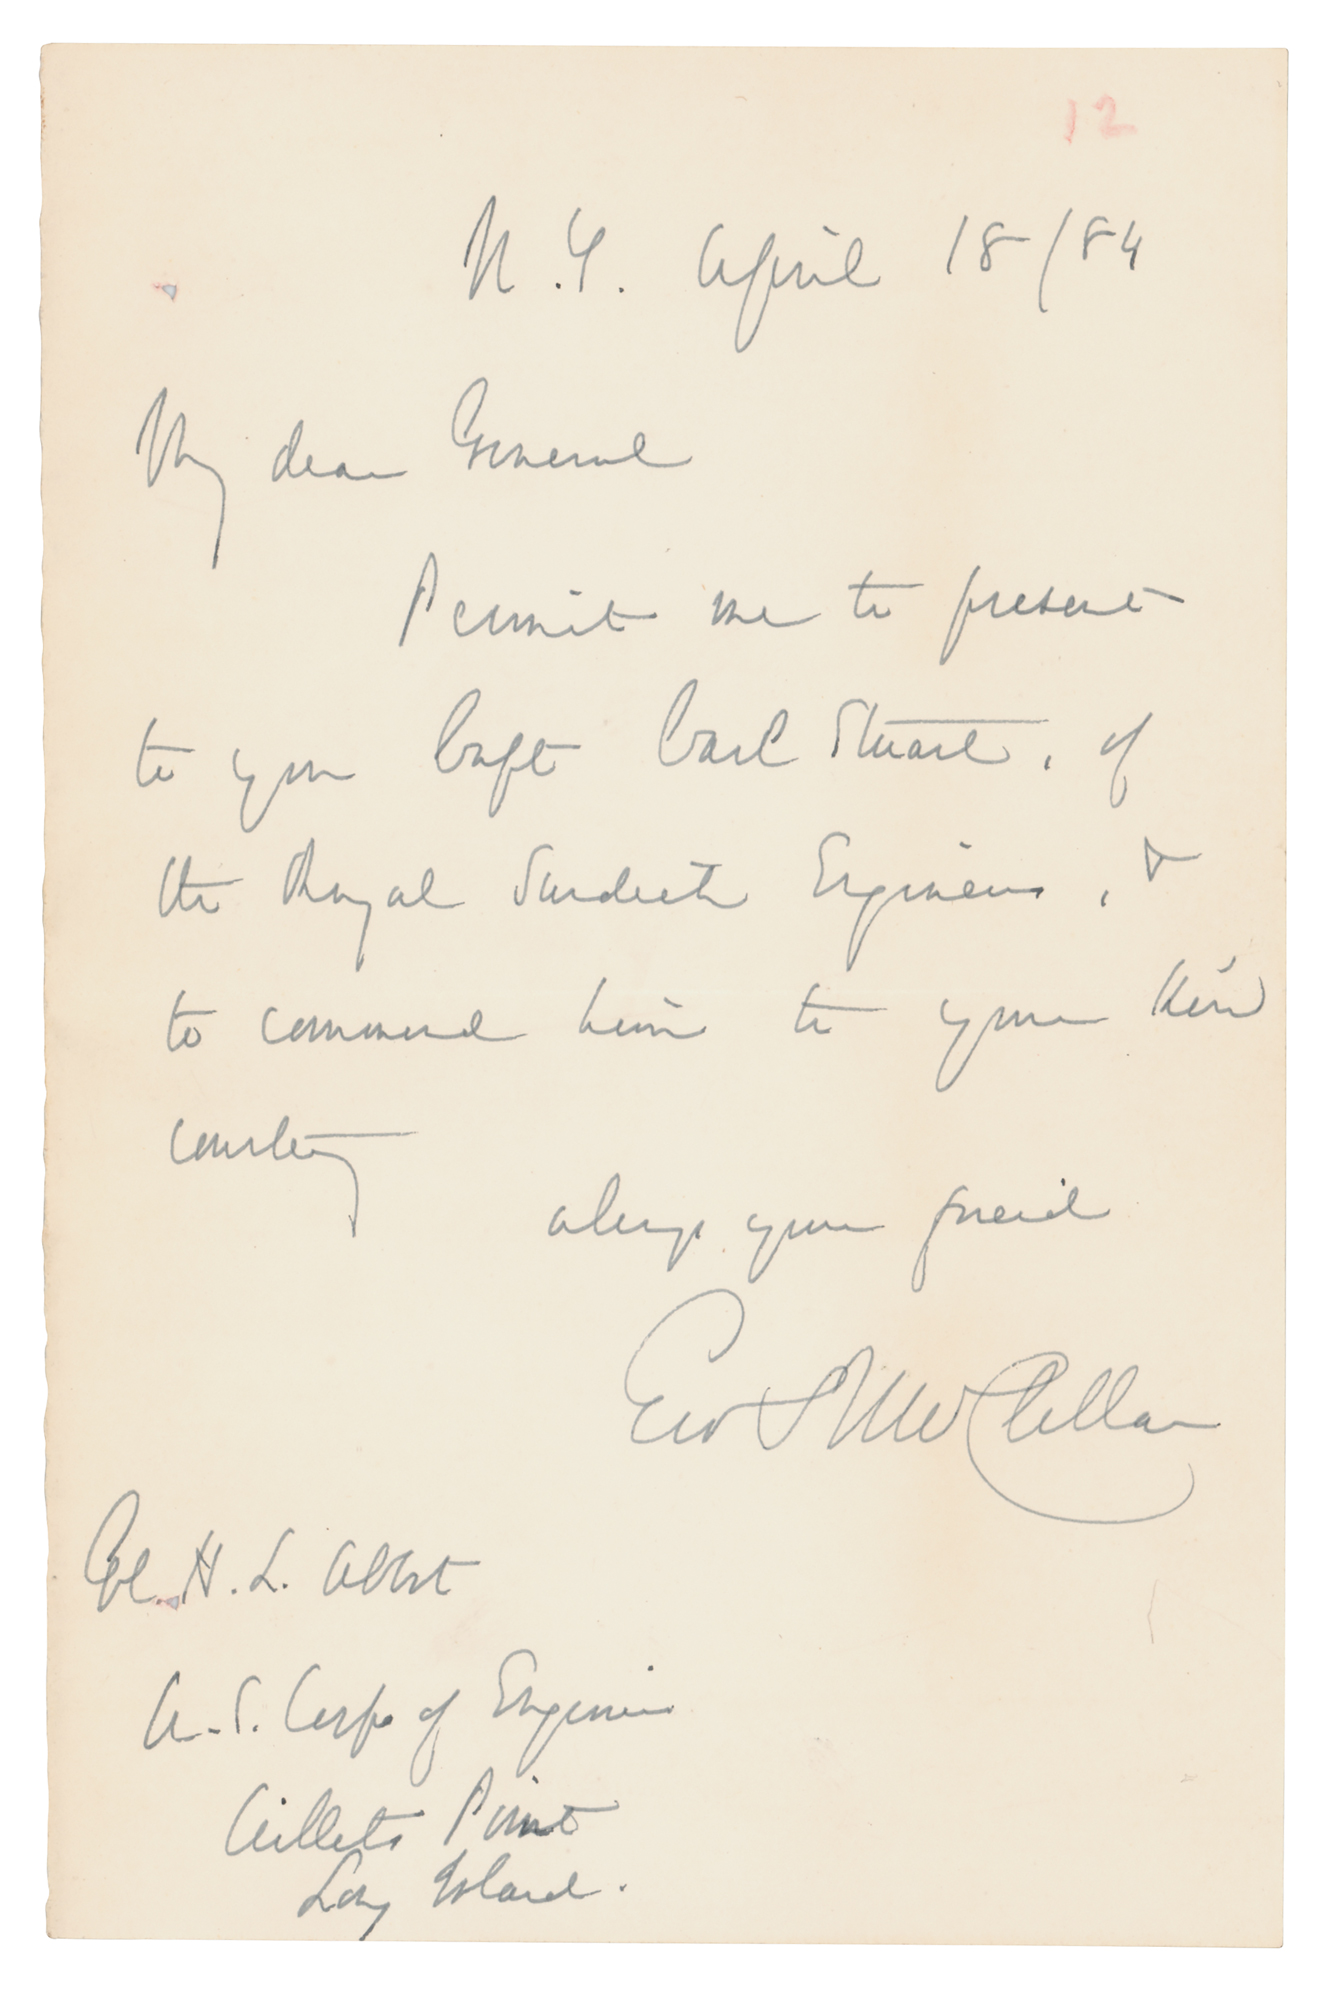 12
N.Y. April 18/84
My dear General
Permit me to present
to you Capt Carl Stuart, of
the Royal Swedish Engineers, &
to commend him to your kind
courtesy
always your friend
Geo B McClellan
Col. H. L. Abbot
U.S. Corps of Engineers
Willets Point
Long Island.